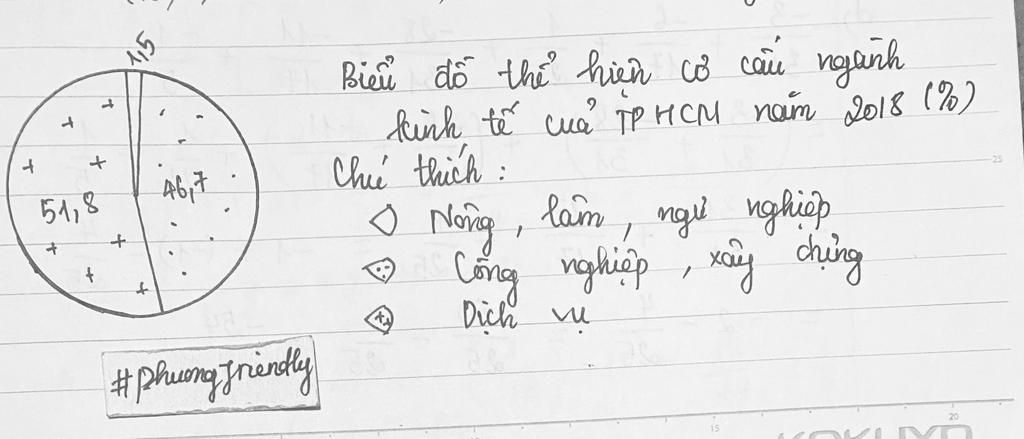 1,5
51,8
46,7
Biểu đồ thể hiện cơ cấu ngành
kinh tế của TPHCM năm 2018 (%)
Chú thích :
Nông , lâm , ngư nghiệp
Công nghiệp , xây chựng
Dịch vụ
#phuongfriendly
15
20
25